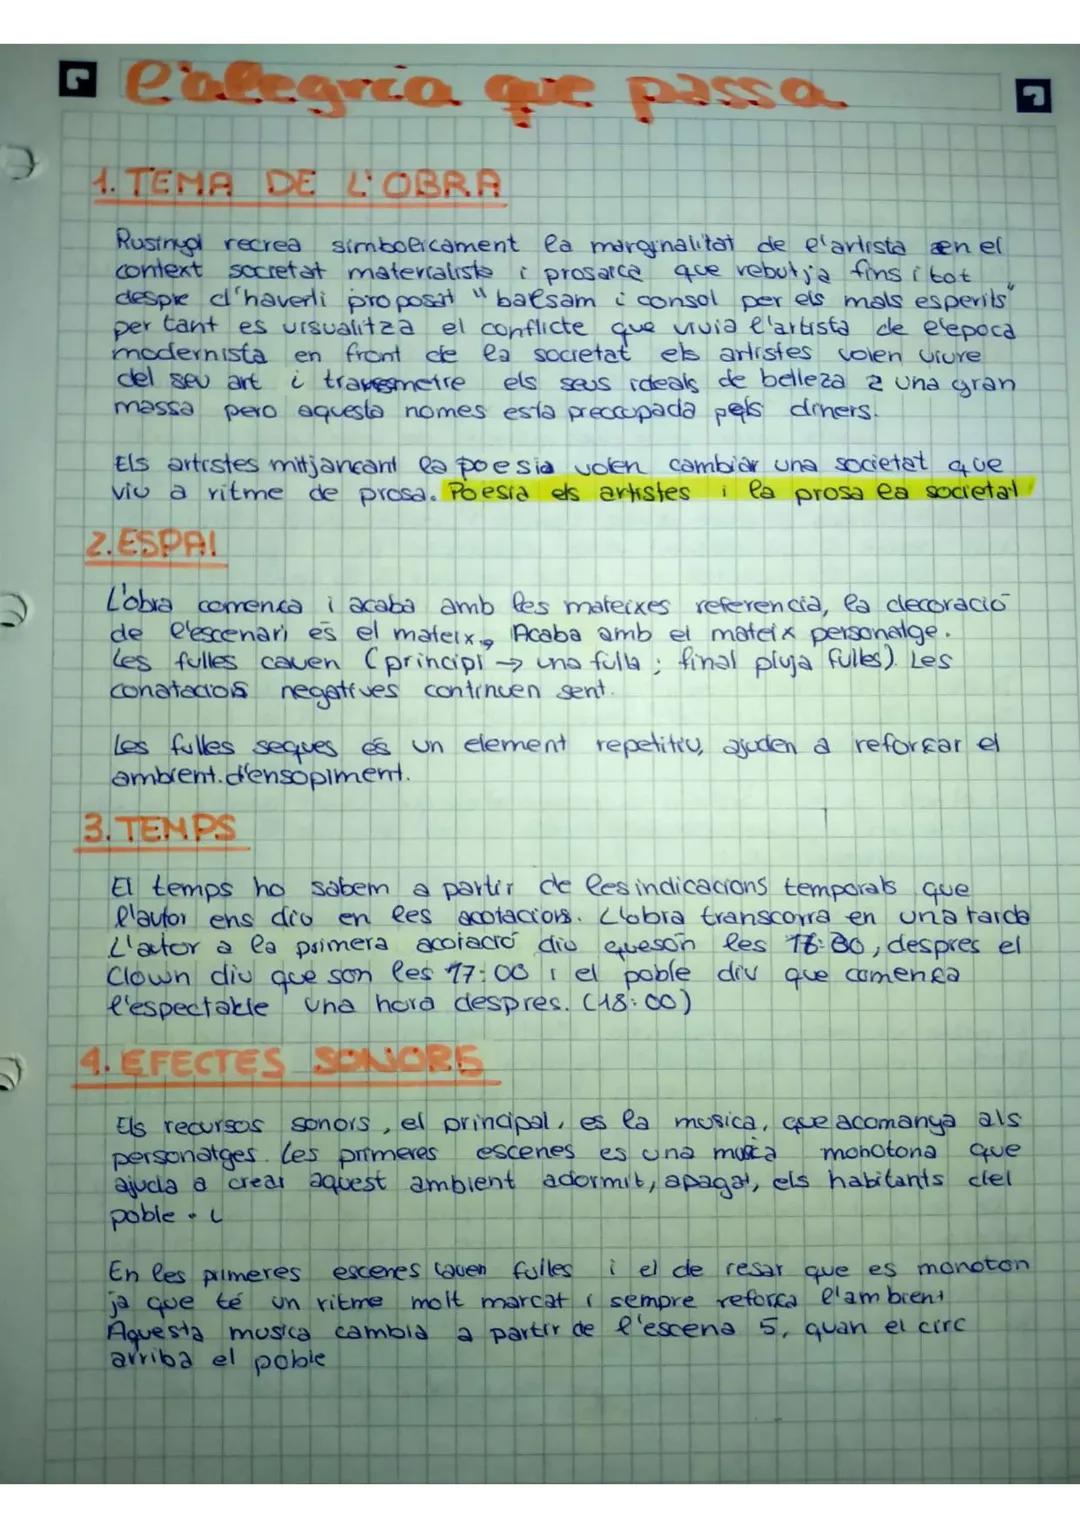 L'alegria que passa
1. TEMA DE L'OBRA
Rusinyol recrea simbolicament la marginalitat de l'artista en el
context societat materialista i prosaica que rebutja fins i tot
despre d'haverli proposat "balsam i consol per els mals esperits"
per tant es visualitza el conflicte que vivia l'artista de l'epoca
modernista en front de la societat els artistes volen viure
del seu art i transmetre els seus ideals de belleza a una gran
massa pero aquesta nomes esta preocupada pels diners.
Els artistes mitjancant la poesia volen cambiar una societat que
viu a ritme de prosa. Poesia els artistes i la prosa la societat
2. ESPAI
L'obra comenca i acaba amb les mateixes referencia, la decoracio
de l'escenari es el mateix, Acaba amb el mateix personatge.
Les fulles cauen (principi → una fulla ; final pluja fulles). Les
conatacions negatives continuen sent.
Les fulles seques es un element repetitiu, ajuden a reforçar el
ambient.d'ensopiment.
3. TEMPS
El temps ho sabem a partir de les indicacions temporals que
l'autor ens diu en les acotacions. L'obra transcorra en una tarda
L'autor a la primera acotació diu que són les 16:30, despres el
Clown diu que son les 17:00 i el poble diu que comença
l'espectakle una hora despres. (18:00)
4. EFECTES SONORS
Els recursos sonors, el principal, es la musica, que acomanya als
personatges. Les primeres escenes es una musica monotona que
ajuda a crear aquest ambient adormit, apagat, els habitants del
poble.
En les primeres escenes cauen fulles i el de resar que es monoton
ja que té un ritme molt marcat i sempre reforça l'ambient
Aquesta musica cambia a partir de l'escena 5, quan el circ
arriba el poble